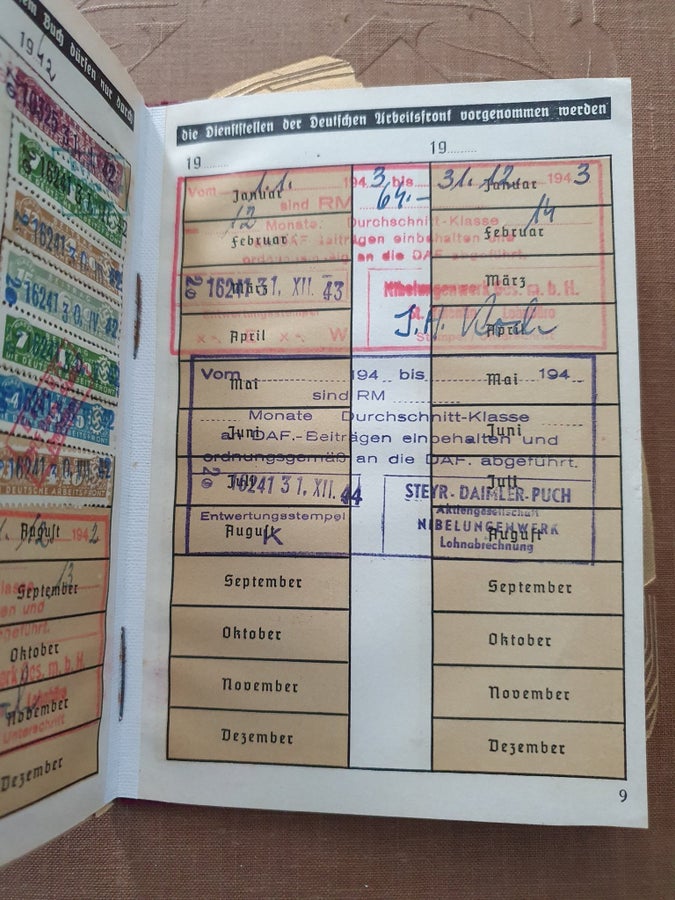 Buch dürfen nur durch
1942
16241 31. 
16241 
16241 30. IV. 42
16241 30. 42
August 1942
September 13
Oktober
November
Unterschrift
Dezember
die Dienststellen der Deutschen Arbeitsfront vorgenommen werden
19........ 19........
Vom 1.1. 1943 bis 31.12. 1943
Januar Januar
sind RM 64.-
12 Monate: Durchschnitt-Klasse 14
Februar Februar
DAF-Beiträgen einbehalten und
an die DAF. abgeführt.
März März
20 16241 31. XII. 43 Nibelungenwerk Ges. m. b. H.
Lohnbüro
Entwertungsstempel
April April
Vom 194 bis 194
Mai Mai
sind RM
Monate Durchschnitt-Klasse
Juni Juni
an DAF.-Beiträgen einbehalten und
ordnungsgemäß an die DAF. abgeführt.
Juli Juli
20 16241 31. XII. 44 STEYR-DAIMLER-PUCH
Aktiengesellschaft
Entwertungsstempel NIBELUNGENWERK
August August
K Lohnabrechnung
September September
Oktober Oktober
November November
Dezember Dezember
9